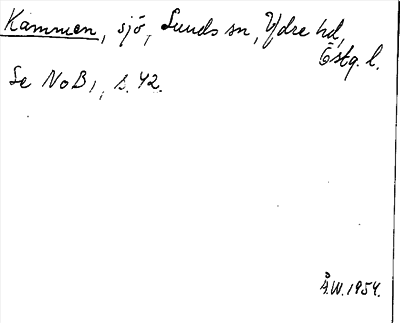 Kammen, sjö, Sunds sn, Ydre hd,
Östg. l.
Se NoB 1, s. 42.
Å.W. 1954.